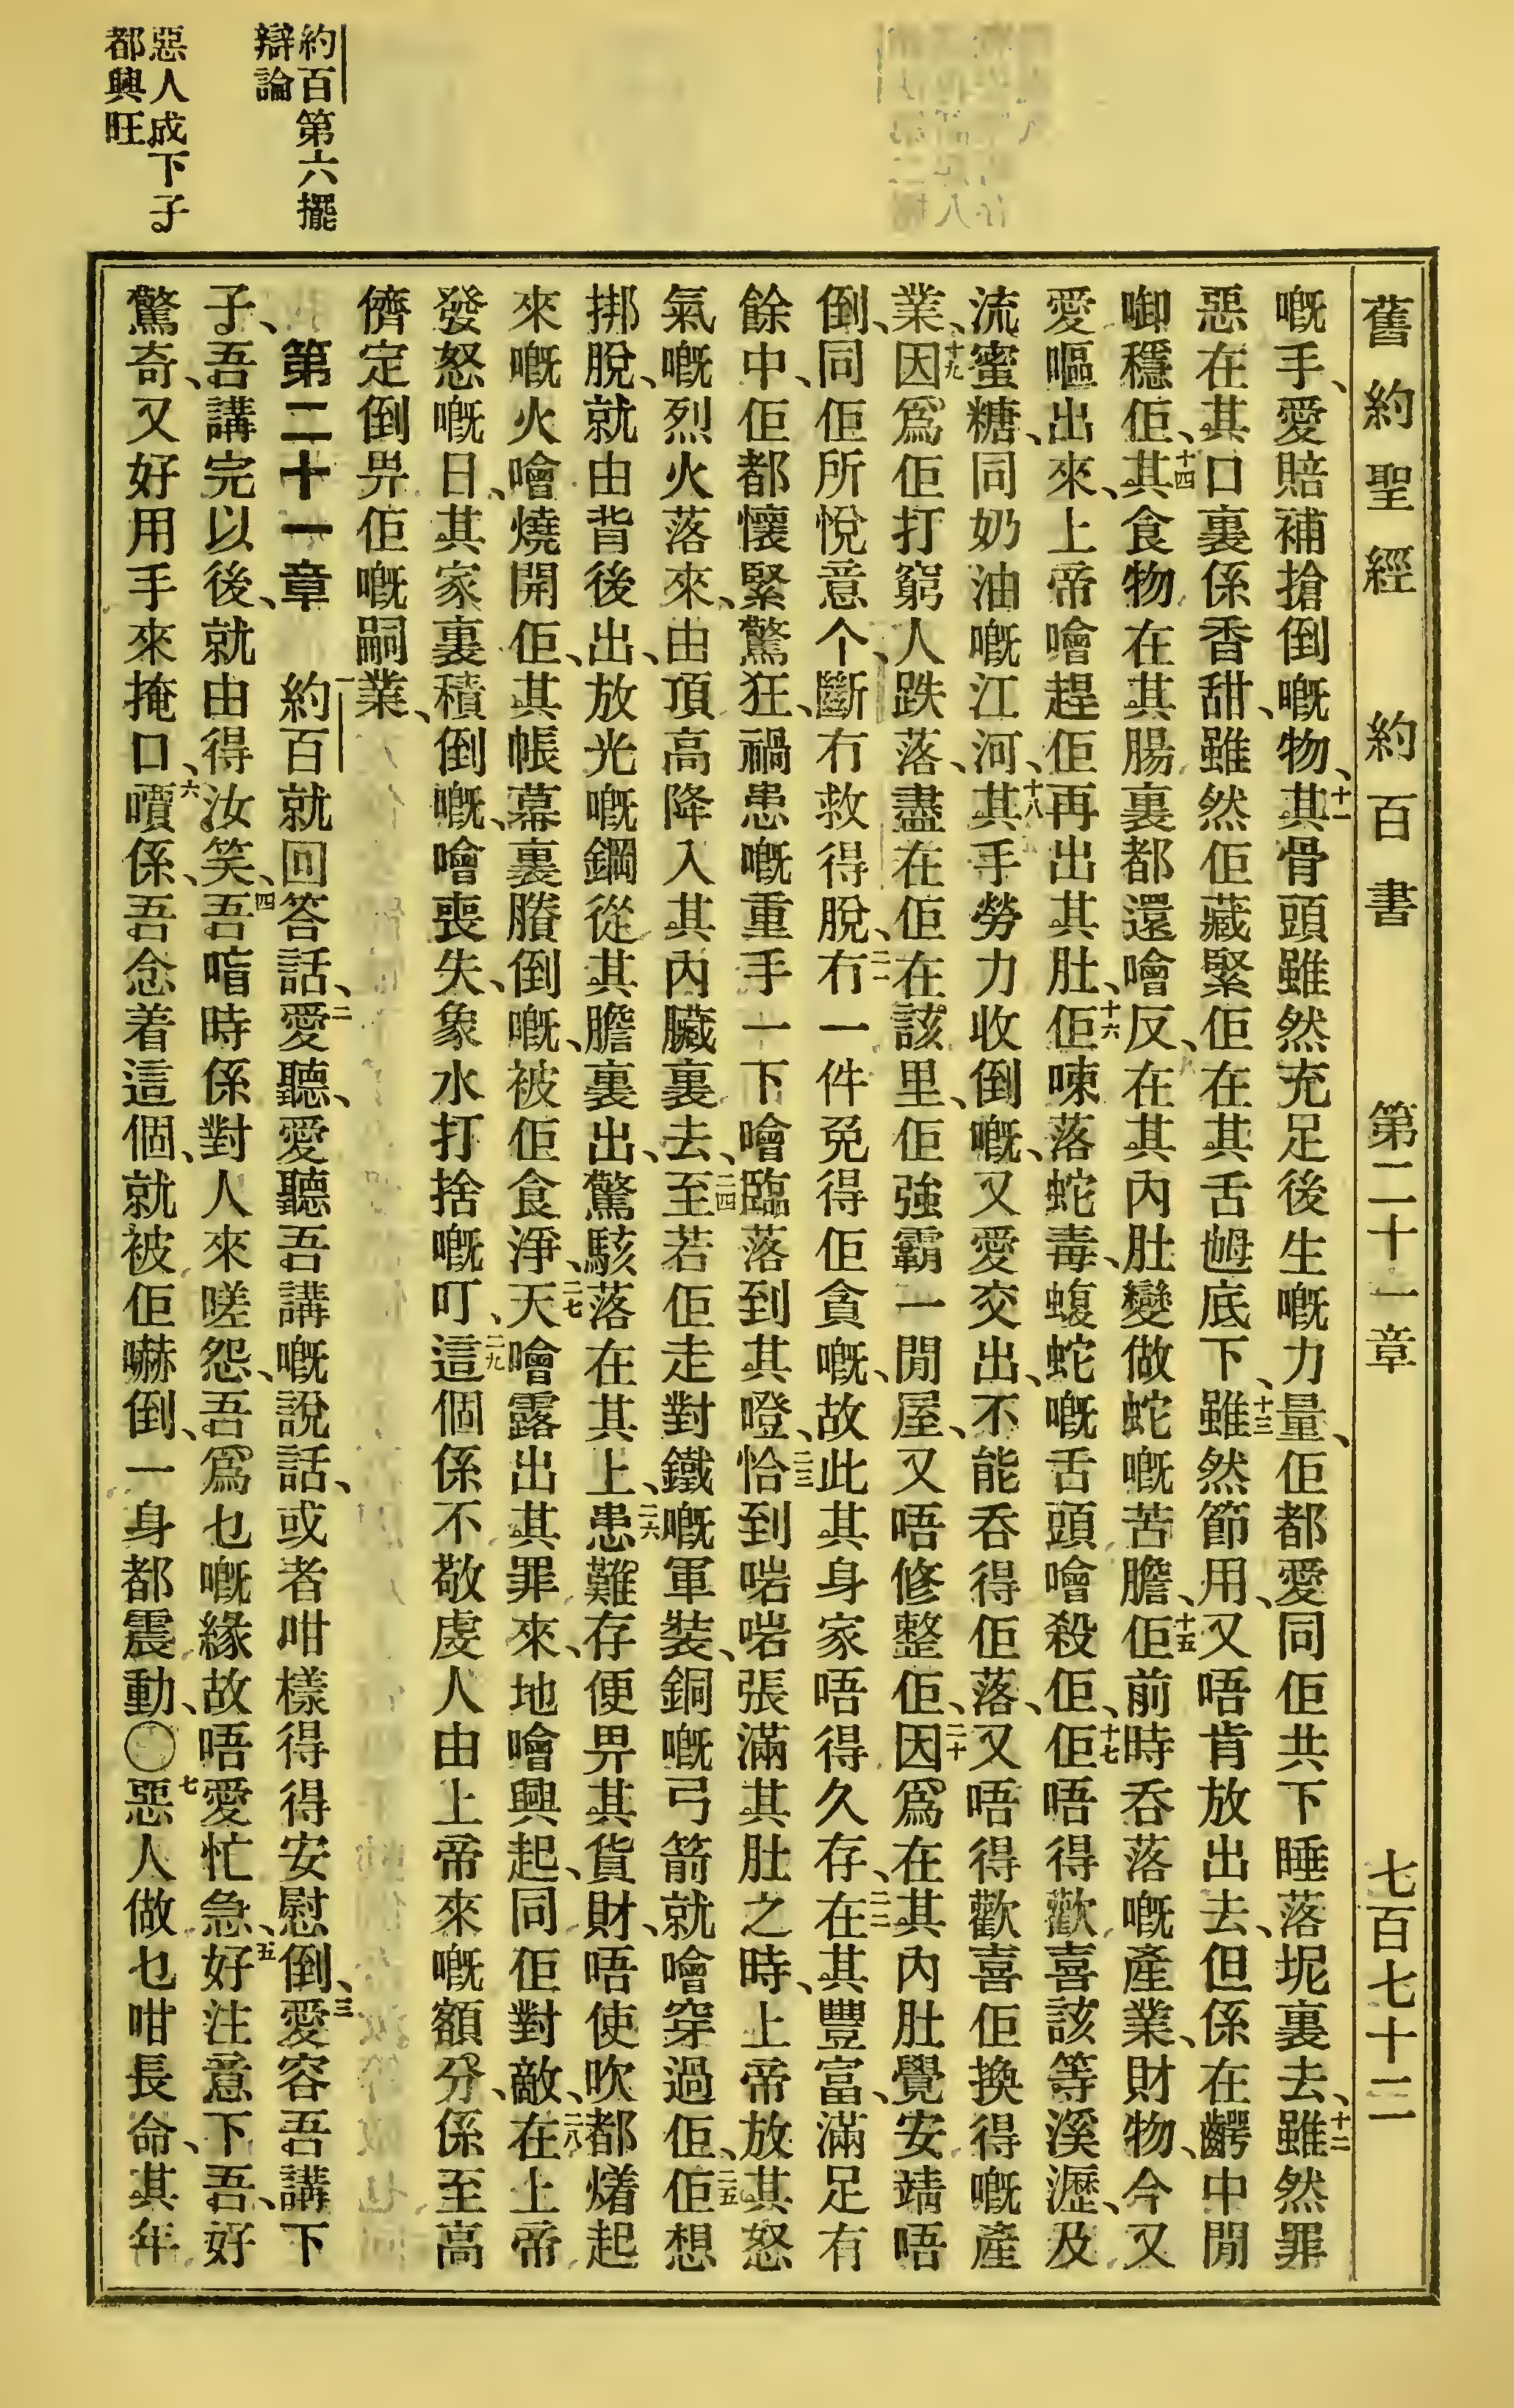 舊約聖經 約百書 第二十一章 七百七十二
嘅手、愛賠補搶倒嘅物、十一其骨頭雖然充足後生嘅力量、佢都愛同佢共下睡落坭裏去、十二雖然罪
惡在其口裏係香甜、雖然佢藏緊佢在其舌乸底下、十三雖然節用、又唔肯放出去、但係在齶中間
啣穩佢、十四其食物在其腸裏都還噲反、在其內肚變做蛇嘅苦膽、十五佢前時呑落嘅產業、財物、今又
愛嘔出來、上帝噲趕佢再出其肚、十六佢㖼落蛇毒、蝮蛇嘅舌頭噲殺佢、十七佢唔得歡喜該等溪瀝、及
流蜜糖、同奶油嘅江河、十八其手勞力收倒嘅、又愛交出、不能呑得佢落、又唔得歡喜佢換得嘅產
業、十九因爲佢打窮人跌落、盡在佢在該里、佢強霸一間屋、又唔修整佢、二十因爲在其內肚覺安靖唔
倒、同佢所悅意个、斷冇救得脫、二一冇一件免得佢貪嘅、故此其身家唔得久存、二二在其豐富、滿足有
餘中、佢都懷緊驚狂、禍患嘅重手一下噲臨落到其、二三恰到啱啱張滿其肚之時、上帝放其怒
氣嘅烈火落來、由頂高降入其內臟裏去、二四至若佢走對鐵嘅軍裝、銅嘅弓箭就噲穿過佢、二五佢想
掷脫、就由背後出、放光嘅鋼從其膽裏出、驚駭落在其上、二六患難存便畀其貨財、唔使吹都㷮起
來嘅火噲燒開佢、其帳幕裏賸倒嘅、被佢食淨、二七天噲露出其罪來、地噲興起、同佢對敵、二八在上帝
發怒嘅日、其家裏積倒嘅、噲喪失、象水打捨嘅叮、二九這個係不敬虔人由上帝來嘅額分、係至高
儕定倒畀佢嘅嗣業、
第二十一章 一約百就回答話、二愛聽、愛聽吾講嘅說話、或者咁樣得得安慰倒、三愛容吾講下
子、吾講完以後、就由得汝笑、四吾喑時係對人來嗟怨、吾爲乜嘅緣故唔愛忙急、五好注意下吾、好
驚奇、又好用手來掩口、六嘳係、吾念着這個、就被佢嚇倒、一身都震動、〇七惡人做乜咁長命、其年
約百第六擺
辯論
惡人成下子
都興旺